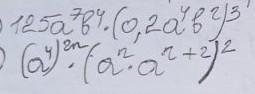 ) 125a⁷b⁴·(0,2a⁴b²)³
) (a⁴)²ⁿ·(aⁿ·aⁿ⁺²)²